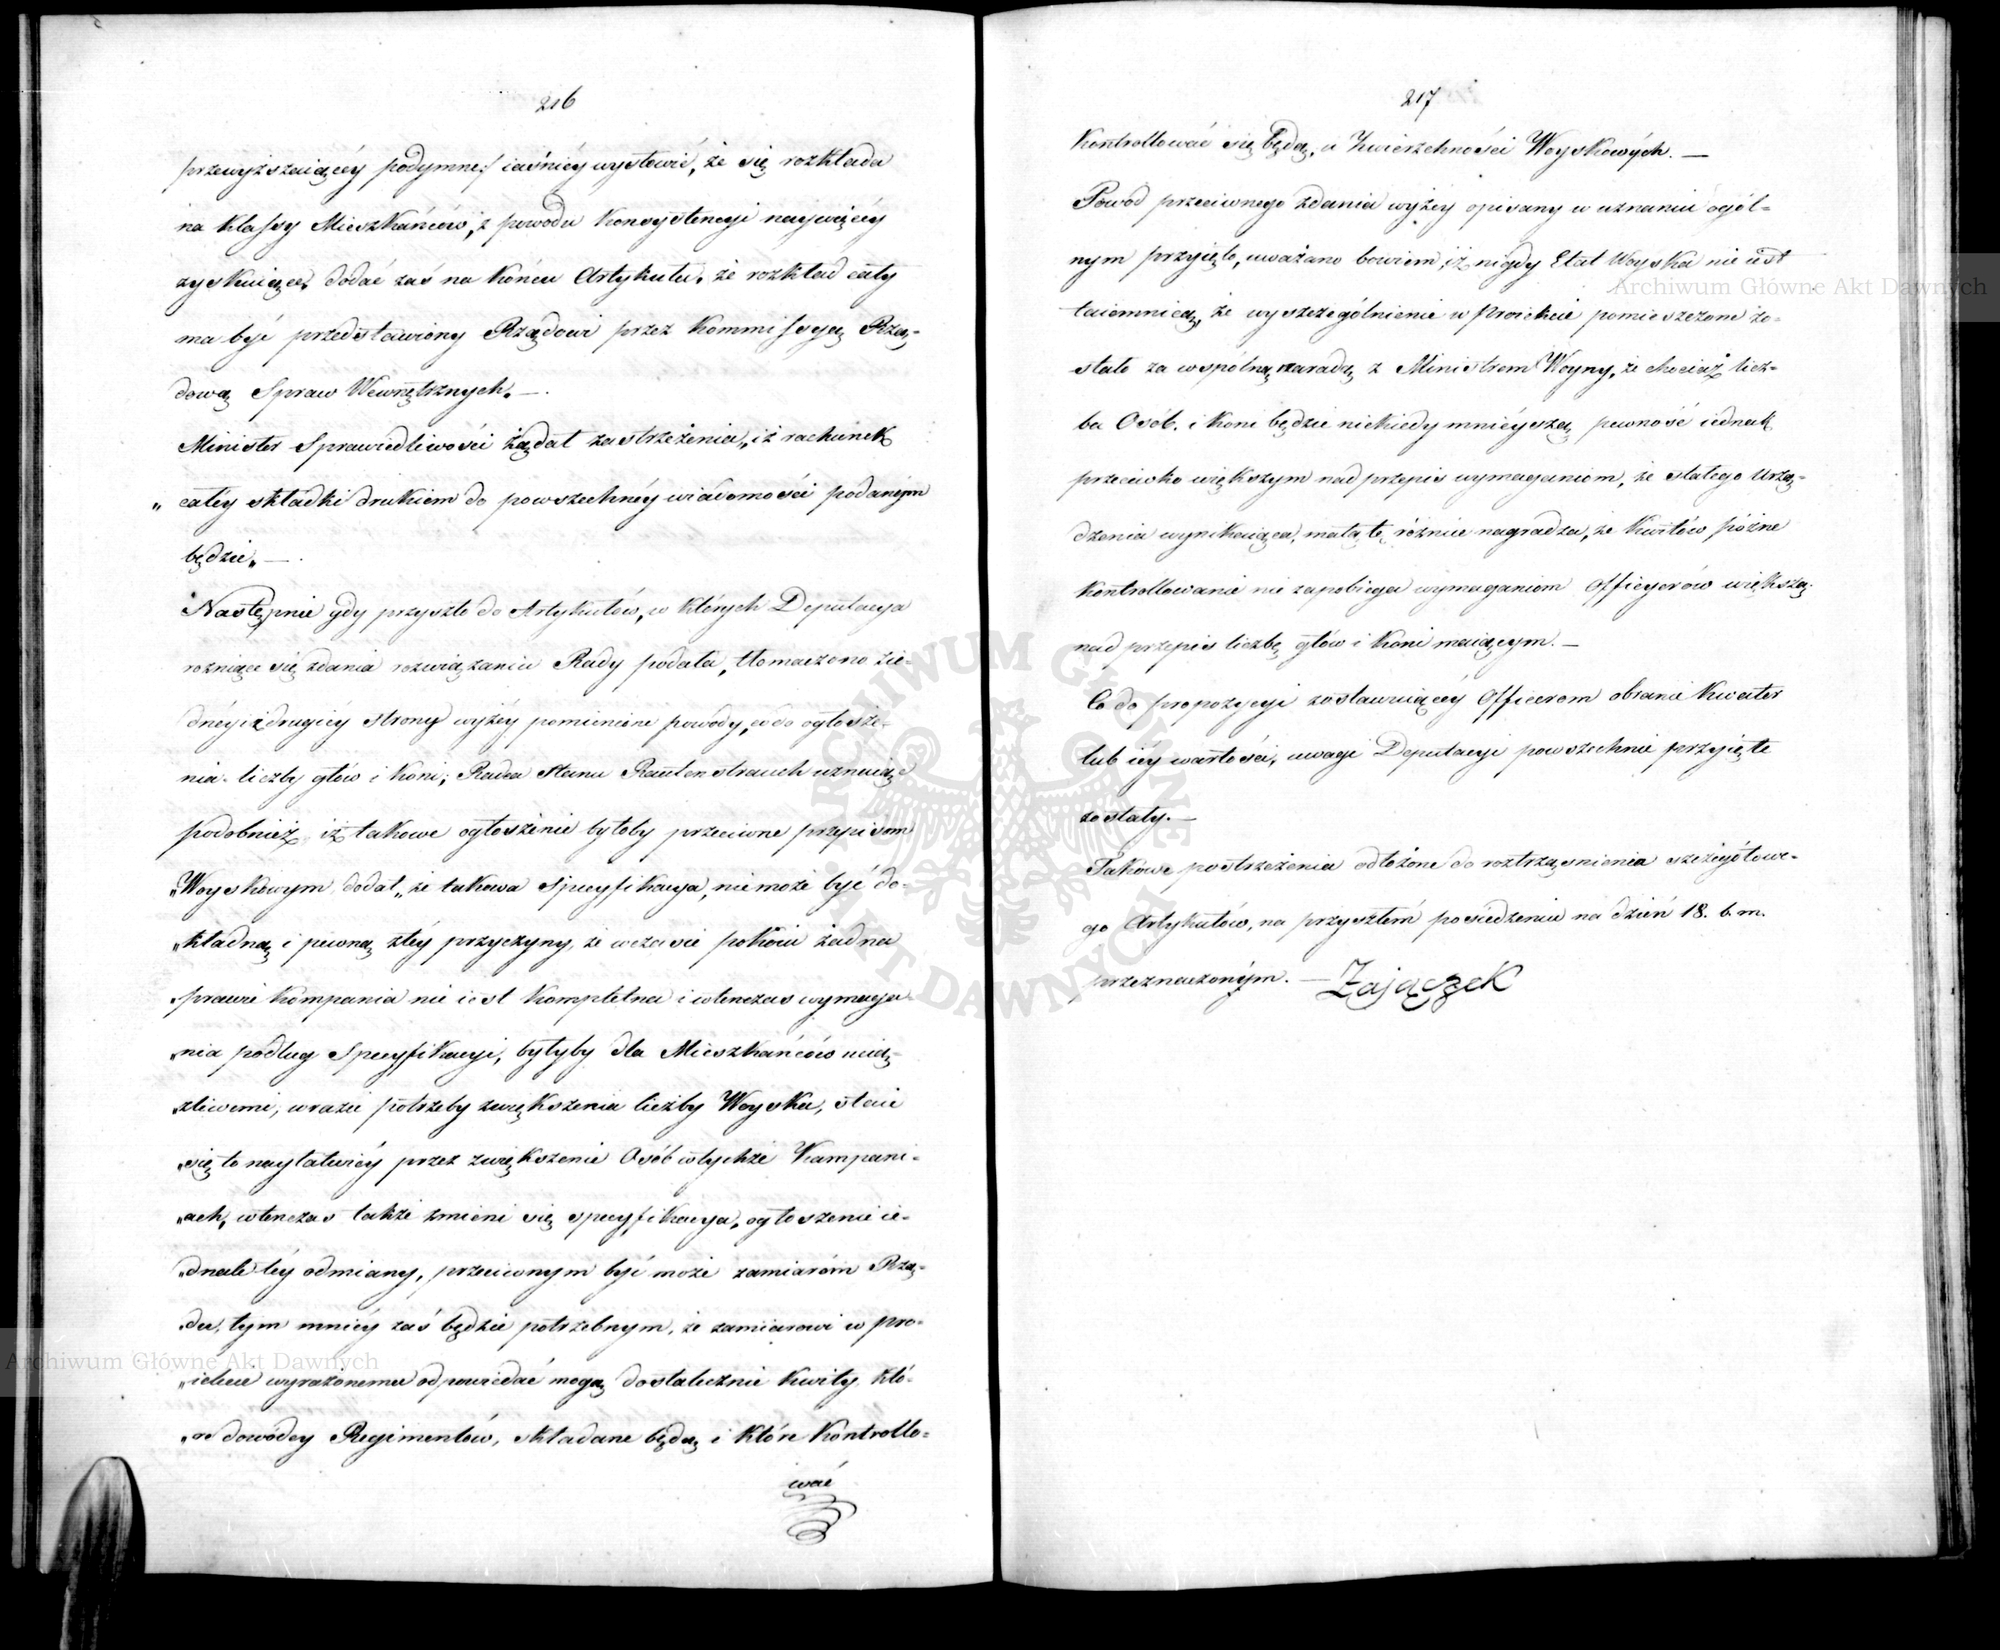 216
przewyższaiącéy podymne:/ iaśniéy wysłowić, że się rozkłada
na klassy Mieszkańców, z powodu Konsystencyi naywięcéy
zyskuiące, dodać zaś na końcu Artykułu, że rozkład cały
ma być przedstawiony Rządowi przez Kommissyą Rzą-
dową Spraw Wewnętrznych. —
Minister Sprawiedliwości żądał zastrzeżenia, „iż rachunek
„całéy składki drukiem do powszechnéy wiadomości podanym
będzie„ —
Następnie gdy przyszło do Artykułów, w których Deputacya
rożniące się zdania rozwiązaniu Rady podała, tłomaczono zie-
dnéy i z drugiéy strony wyżéy pomienione powody, co do ogłosze-
nia liczby głów i koni; Radca Stanu Rautenstrauch uznaiąc
podobnież, iż takowe ogłoszenie byłoby przeciwne przepisom
Woyskowym, dodał, „że takowa specyfikacya, nie może być do-
„kładną i pewną z téy przyczyny, że wczasie pokoiu żadna
„prawie kompania nie iest kompletna i wtenczas wymaga-
„nia podług Specyfikacyi, byłyby dla Mieszkańców uciąż-
„zliwemi, w razie potrzeby zwiększenia liczby Woyska, staie
„się to nayłatwiéy przez zwiększenie Osób w tychże Kampani-
„ach, wtenczas także zmieni się specyfikacya, ogłoszenie ie-
„dnak téy odmiany, przeciwnym być może zamiaróm Rzą-
„du, tym mniéy zaś będzie potrzebnym, że zamiarowi w pro-
„iekcie wyrażonemu odpowiedać mogą dostatecznie kwity, któ-
„re dowódcy Regimentów, składane będą i które kontrollo-
wać
217
Kontrollować się będą, u Zwierzchności Woyskowych. —
Powód przeciwnego zdania wyżéy opisany w uznaniu ogól-
nym przyięto, uważano bowiem, iż nigdy Etat Woyska nie iest
taiemnicą, że wyszczególnienie w Proiekcie pomieszczone zo-
stało za wspólną naradą z Ministrem Woyny, że chociaż licz-
ba Osób, i koni będzie niekiedy mniéyszą, pewność iednak
przeciwko większym nad przepis wymaganiom, że stałego urzą-
dzenia wynikaiąca, małą tę różnicę nagradza, że kwitów późne
kontrollowanie nie zapobiega wymaganiom Officyerów większą
nad przepis liczbę głów i koni maiącym. —
Co do propozycyi zostawuiącéy Officerom obranie kwater
lub iéy wartości, uwagi Deputacyi powszechnie przyięte
zostały. —
Takowe postrzeżenia odłożone do roztrząsnienia szczegółowe-
go Artykułów, na przyszłem posiedzeniu na dzień 18. b. m.
przeznaczonym. — Zajączek
Archiwum Główne Akt Dawnych
Archiwum Główne Akt Dawnych
ARCHIWUM GŁÓWNE AKT DAWNYCH